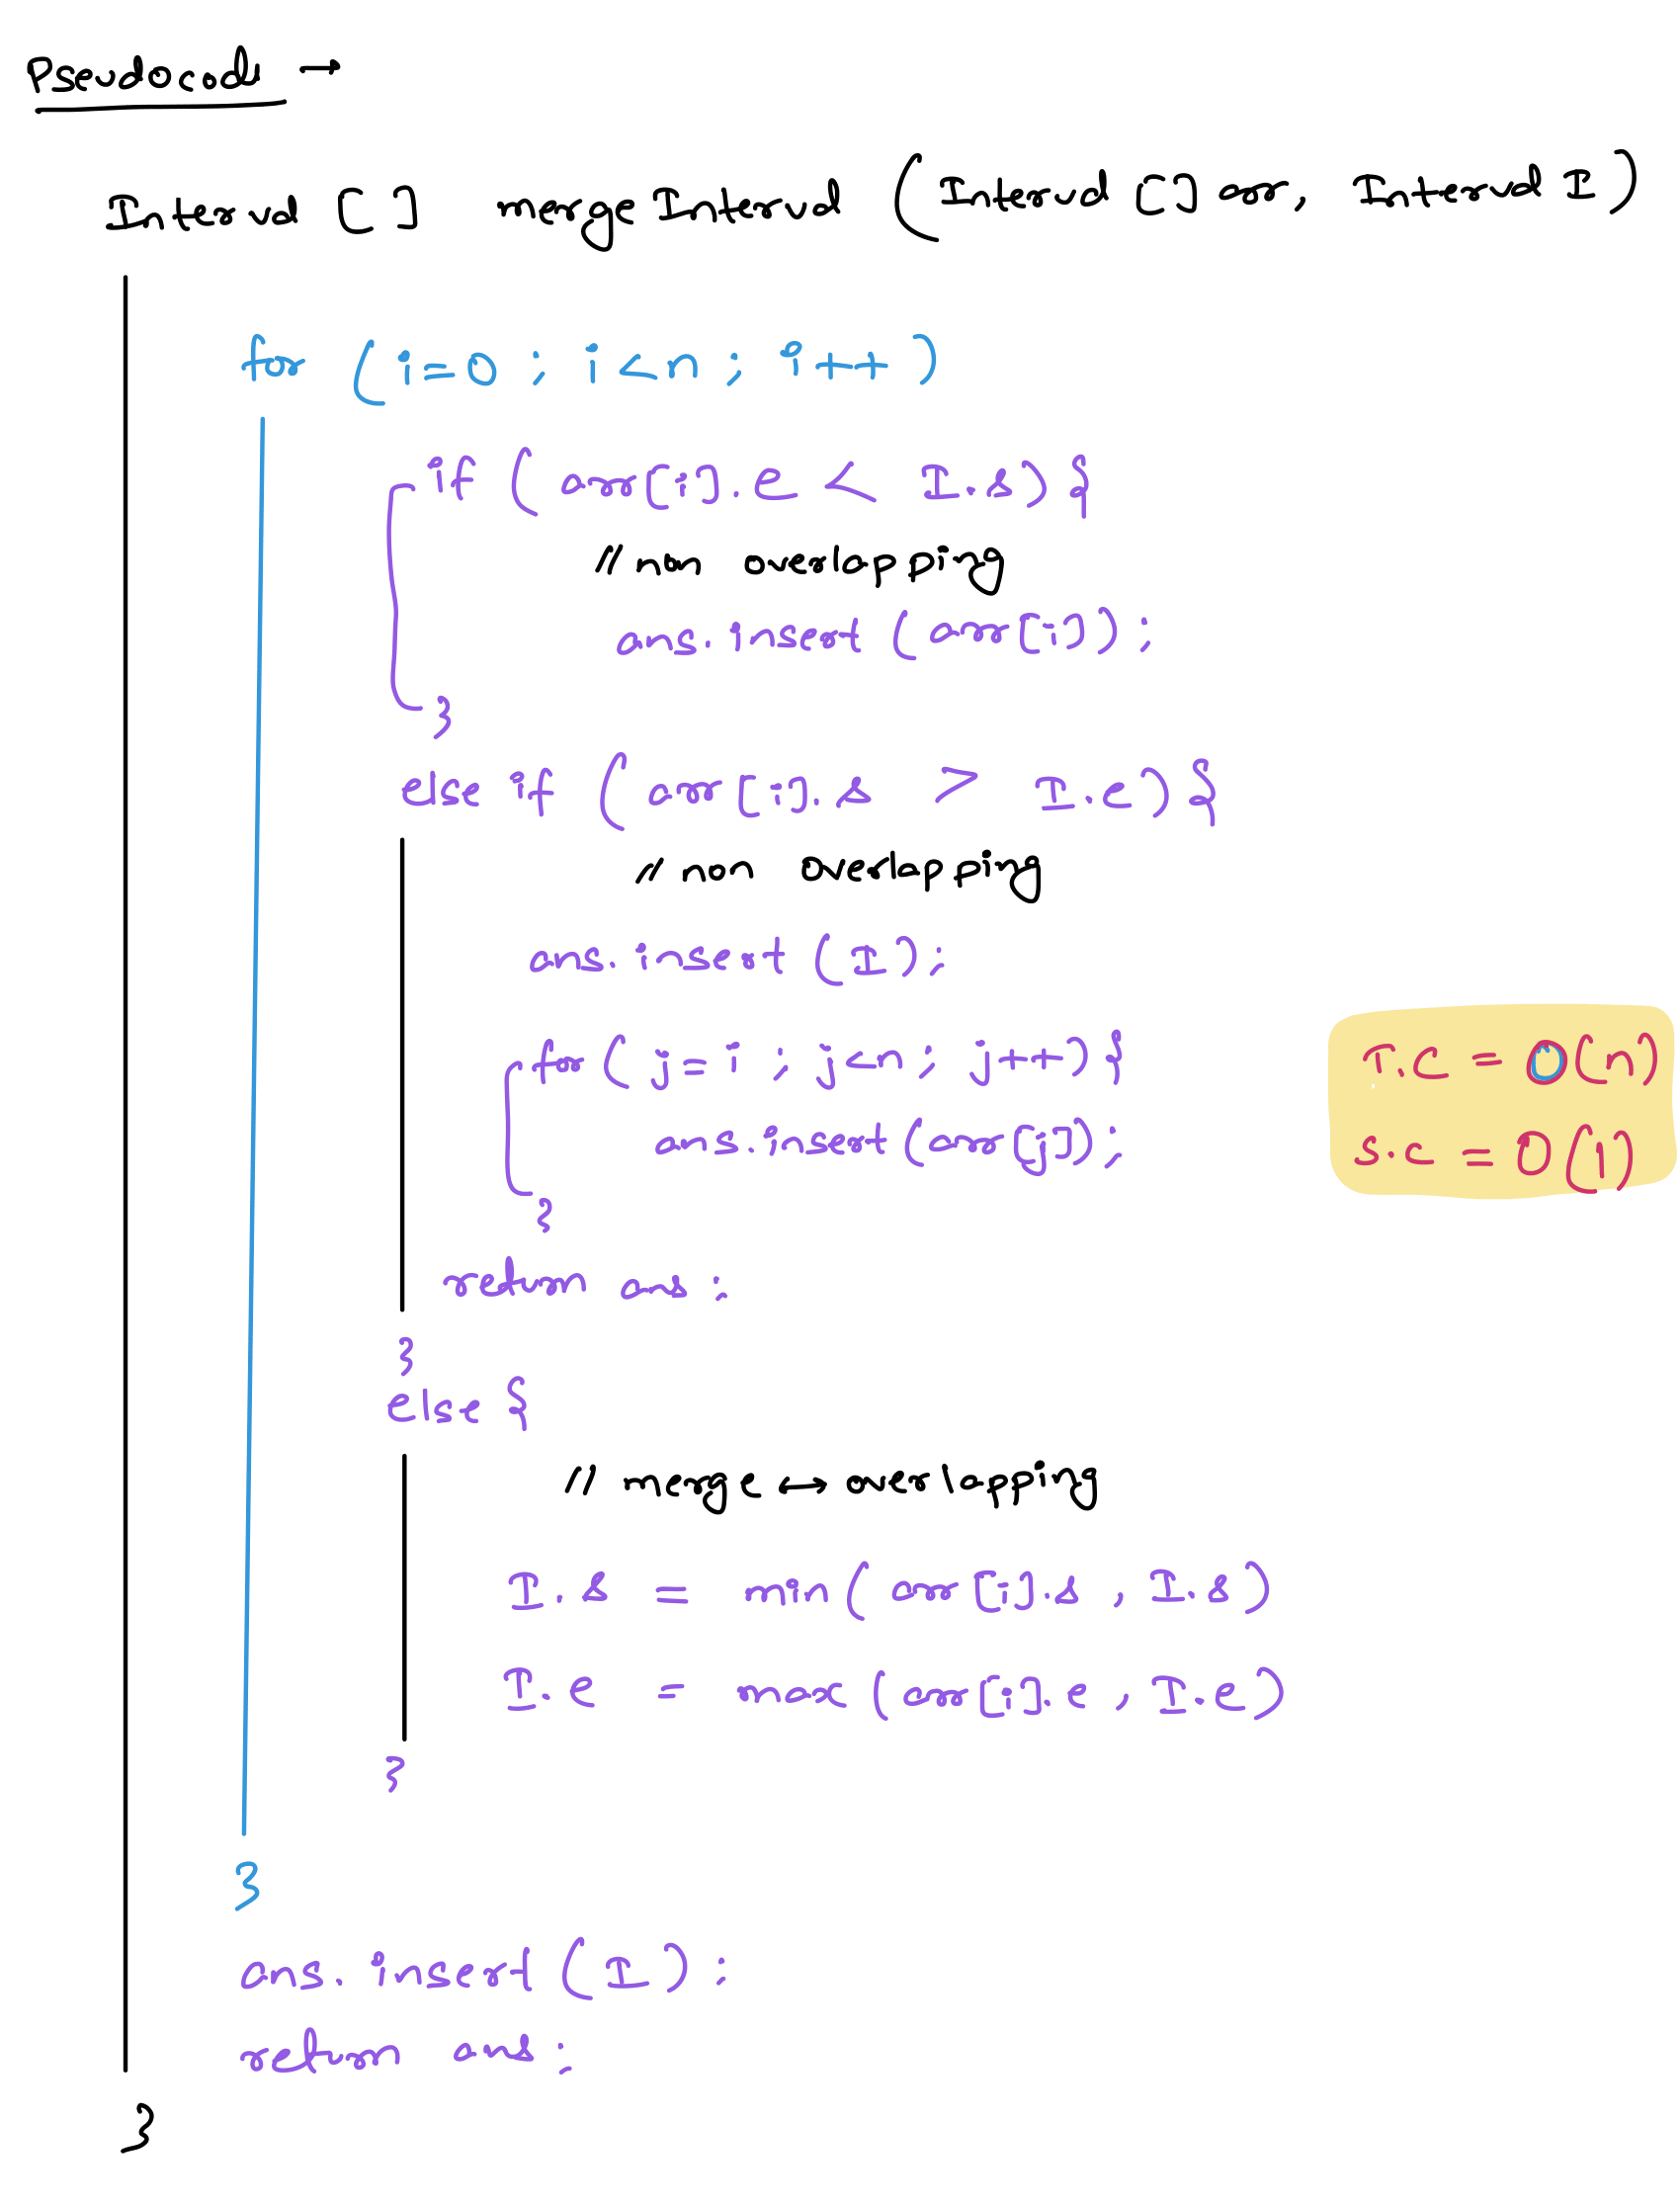 Pseudocode →
Interval [ ] mergeInterval (Interval [] arr, Interval I)
for (i=0 ; i<n ; i++ )
if ( arr[i].e < I.s) {
// non overlapping
ans.insert (arr[i]);
}
else if ( arr[i].s > I.e) {
// non overlapping
ans.insert (I);
for ( j=i ; j<n ; j++) {
ans.insert (arr[j]);
}
return ans ;
}
else {
// merge ↔ overlapping
I.s = min( arr[i].s , I.s)
I.e = max (arr[i].e , I.e)
}
}
ans.insert (I) ;
return ans ;
}
T.C = O(n)
S.C = O(1)